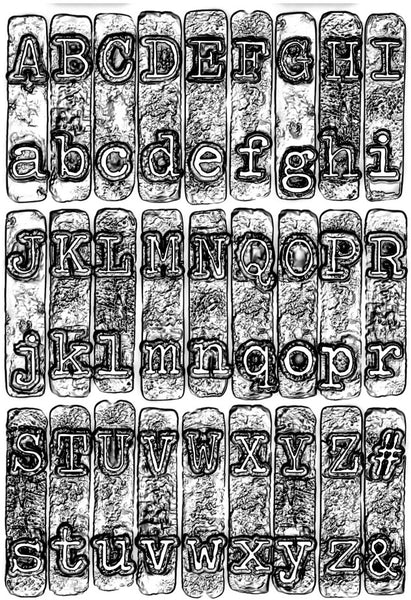 ABCDEFGHI
abcdefghi
JKLMNQOPR
jklmnqopr
STUVWXYZ#
stuvwxyz&